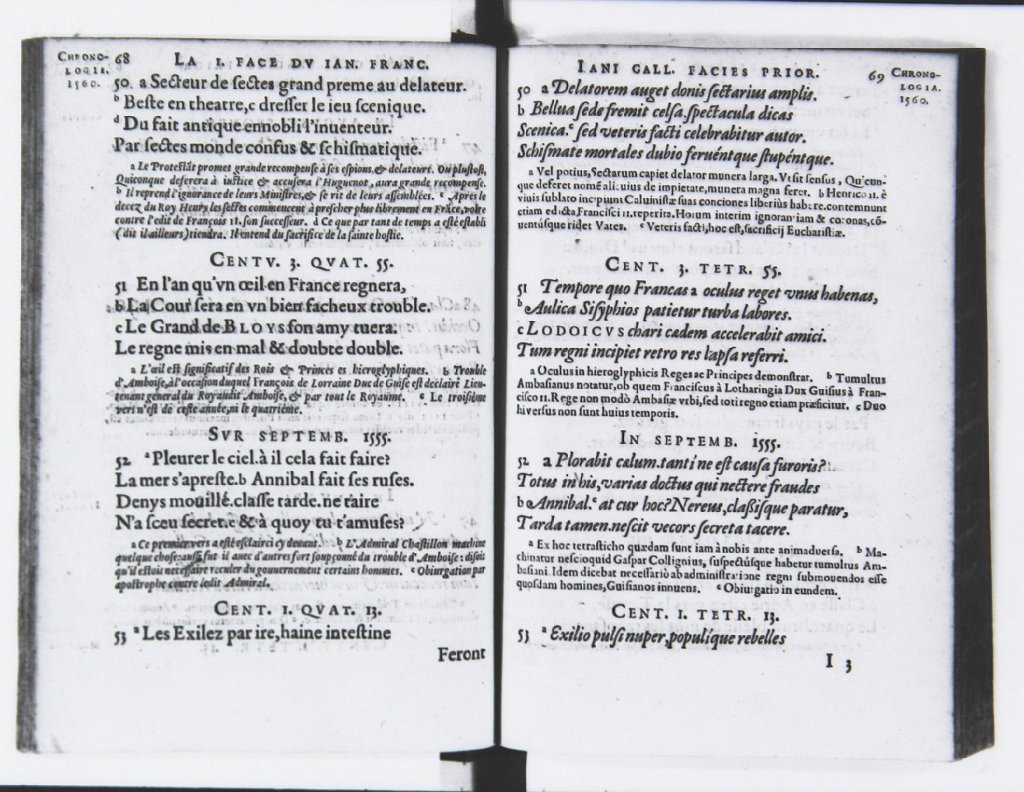 CHRONO-
LOGIE.
1560.
68 LA I. FACE DV IAN. FRANC.
50. a Secteur de sectes grand preme au delateur.
b Beste en theatre, c dresser le ieu scenique.
d Du fait antique ennobli l'inuenteur.
Par sectes monde confus & schismatique.
a Le Protestãt promet grande recompense à ses espions, & delateurs. Ou plustost,
Quiconque deferera à iustice & accusera l'Huguenot, aura grande recompense.
b Il reprend l'ignorance de leurs Ministres, & se rit de leurs assemblées. c Apres le
decez du Roy Henry les sectes commencent à prescher plus librement en Frãce, voire
contre l'edit de François 11. son successeur. d Ce que par tant de temps a esté establi
(dit il ailleurs) tiendra. Il entend du sacrifice de la sainte hostie.
CENTV. 3. QVAT. 55.
51 En l'an qu'vn œil en France regnera,
b La Cour sera en vn bien facheux trouble.
c Le Grand de BLOYS son amy tuera.
Le regne mis en mal & doubte double.
a L'œil est significatif des Rois & Princes es hieroglyphiques. b Trouble
d'Amboise, à l'occasion duquel François de Lorraine Duc de Guise est declairé Lieu-
tenant general du Roy audit Amboise, & par tout le Royaume. c Le troisiéme
vers n'est de ceste année, ni le quatriéme.
SVR SEPTEMB. 1555.
52 a Pleurer le ciel. à il cela fait faire?
La mer s'apreste. b Annibal fait ses ruses.
Denys mouillé. classe tarde. ne taire
N'a sceu secret. c & à quoy tu t'amuses?
a Ce premier vers a esté esclairci cy deuant. b L'Admiral Chastillon machint
quelque chose: aussi fut il auec d'autres fort soupçonné du trouble d'Amboise: disoit
qu'il estoit necessaire reculer du gouuernement certains hommes. c Obiurgation par
apostrophe contre ledit Admiral.
CENT. I. QVAT. 13.
53 a Les Exilez par ire, haine intestine
Feront
IANI GALL. FACIES PRIOR. 69
CHRONO-
LOGIA.
1560.
50 a Delatorem auget donis sectarius amplis.
b Bellua sede fremit celsa. spectacula dicas
Scenica. c sed veteris facti celebrabitur autor.
Schismate mortales dubio feruéntque stupéntque.
a Vel potius, Sectarum capiet delator munera larga. Vt sit sensus, Quicun-
que deferet nomẽ alicuius de impietate, munera magna feret. b Henrico 11. è
viuis sublato incipiunt Caluinistæ suas conciones liberiùs habere. contemnunt
etiam edicta Francisci 11. reperita. Horum interim ignorantiam & coronas, cõ-
uentúsque ridet Vates. c Veteris facti, hoc est, sacrificij Eucharistiæ.
CENT. 3. TETR. 55.
51 Tempore quo Francas a oculus reget vnus habenas,
b Aulica Sisyphios patietur turba labores.
c LODOICVS chari cædem accelerabit amici.
Tum regni incipiet retro res lapsa referri.
a Oculus in hieroglyphicis Reges ac Principes demonstrat. b Tumultus
Ambasianus notatur, ob quem Franciscus à Lotharingia Dux Guisius à Fran-
cisco 11. Rege non modò Ambasiæ vrbi, sed toti regno etiam præficitur. c Duo
hi versus non sunt huius temporis.
IN SEPTEMB. 1555.
52 a Plorabit cælum. tanti ne est causa furoris?
Totus in his, varias doctus qui nectere fraudes
b Annibal. c at cur hoc? Nereus, classisque paratur,
Tarda tamen. nescit vecors secreta tacere.
a Ex hoc tetrasticho quædam sunt iam à nobis ante animaduersa. b Ma-
chinatur nescio quid Gaspar Collignius, suspectúsque habetur tumultus Am-
basiani. Idem dicebat necessariò ab administratione regni submouendos esse
quosdam homines, Guisianos innuens. c Obiurgatio in eundem.
CENT. I. TETR. 13.
53 a Exilio pulsi nuper, populíque rebelles
I 3